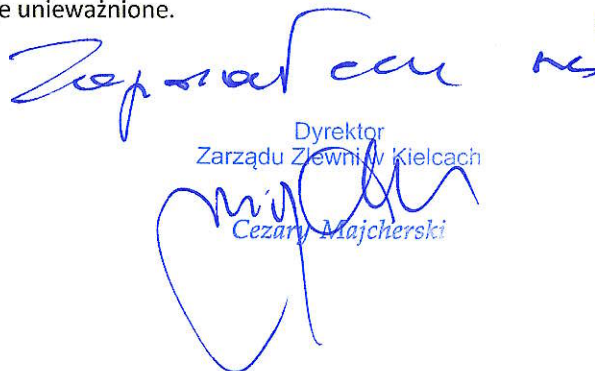 e unieważnione.
Zapoznałem się
Dyrektor
Zarządu Zlewni w Kielcach
Cezary Majcherski